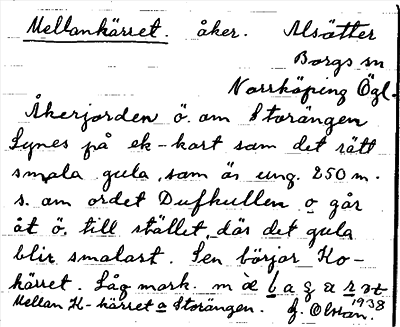 Mellankärret. åker. Alsätter
Borgs sn
Norrköping Ögl.
Åkerjorden ö. om Storängen
Synes på ek-kart som det rätt
smala gula, som är ung. 250 m.
s. om ordet Dufkullen o går
åt ö. till stället, där det gula
blir smalast. Sen börjar Ko-
kärret. Låg mark.
Mellan K-kärret a Storängen. 1938